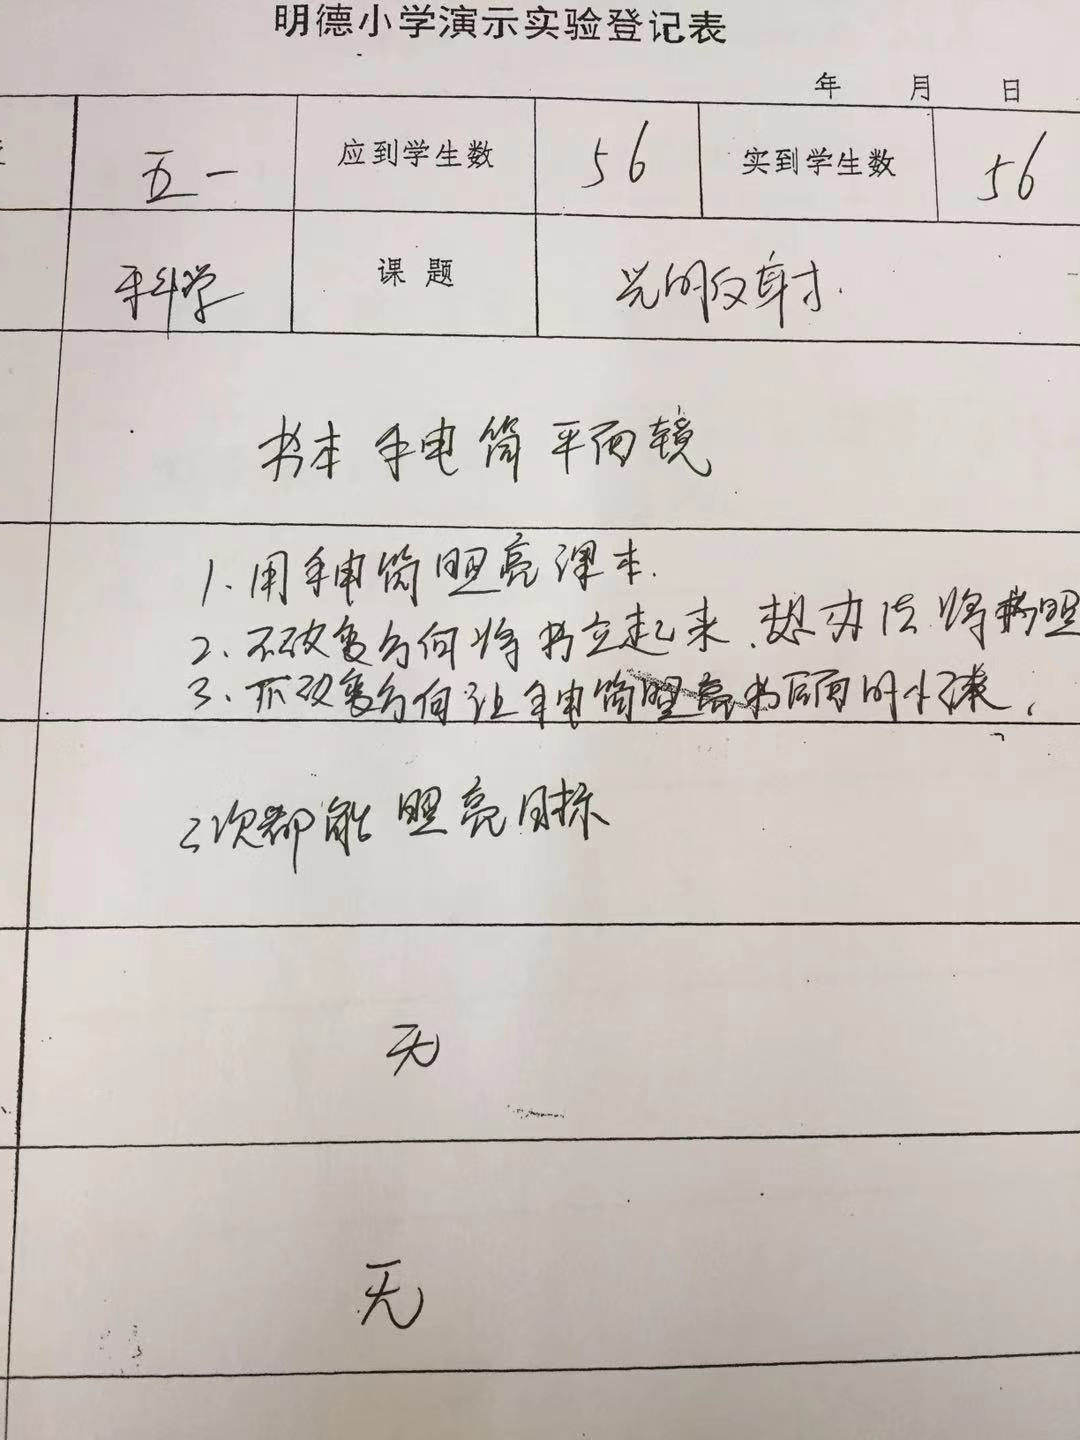 明德小学演示实验登记表
年 月 日
五一 应到学生数 56 实到学生数 56
科学 课题 光的反射.
书本 手电筒 平面镜
1.用手电筒照亮课本.
2、不改变方向将书立起来、想办法将书照
3、不改变方向让手电筒照亮书后面的小球.
三次都能照亮目标
无
无